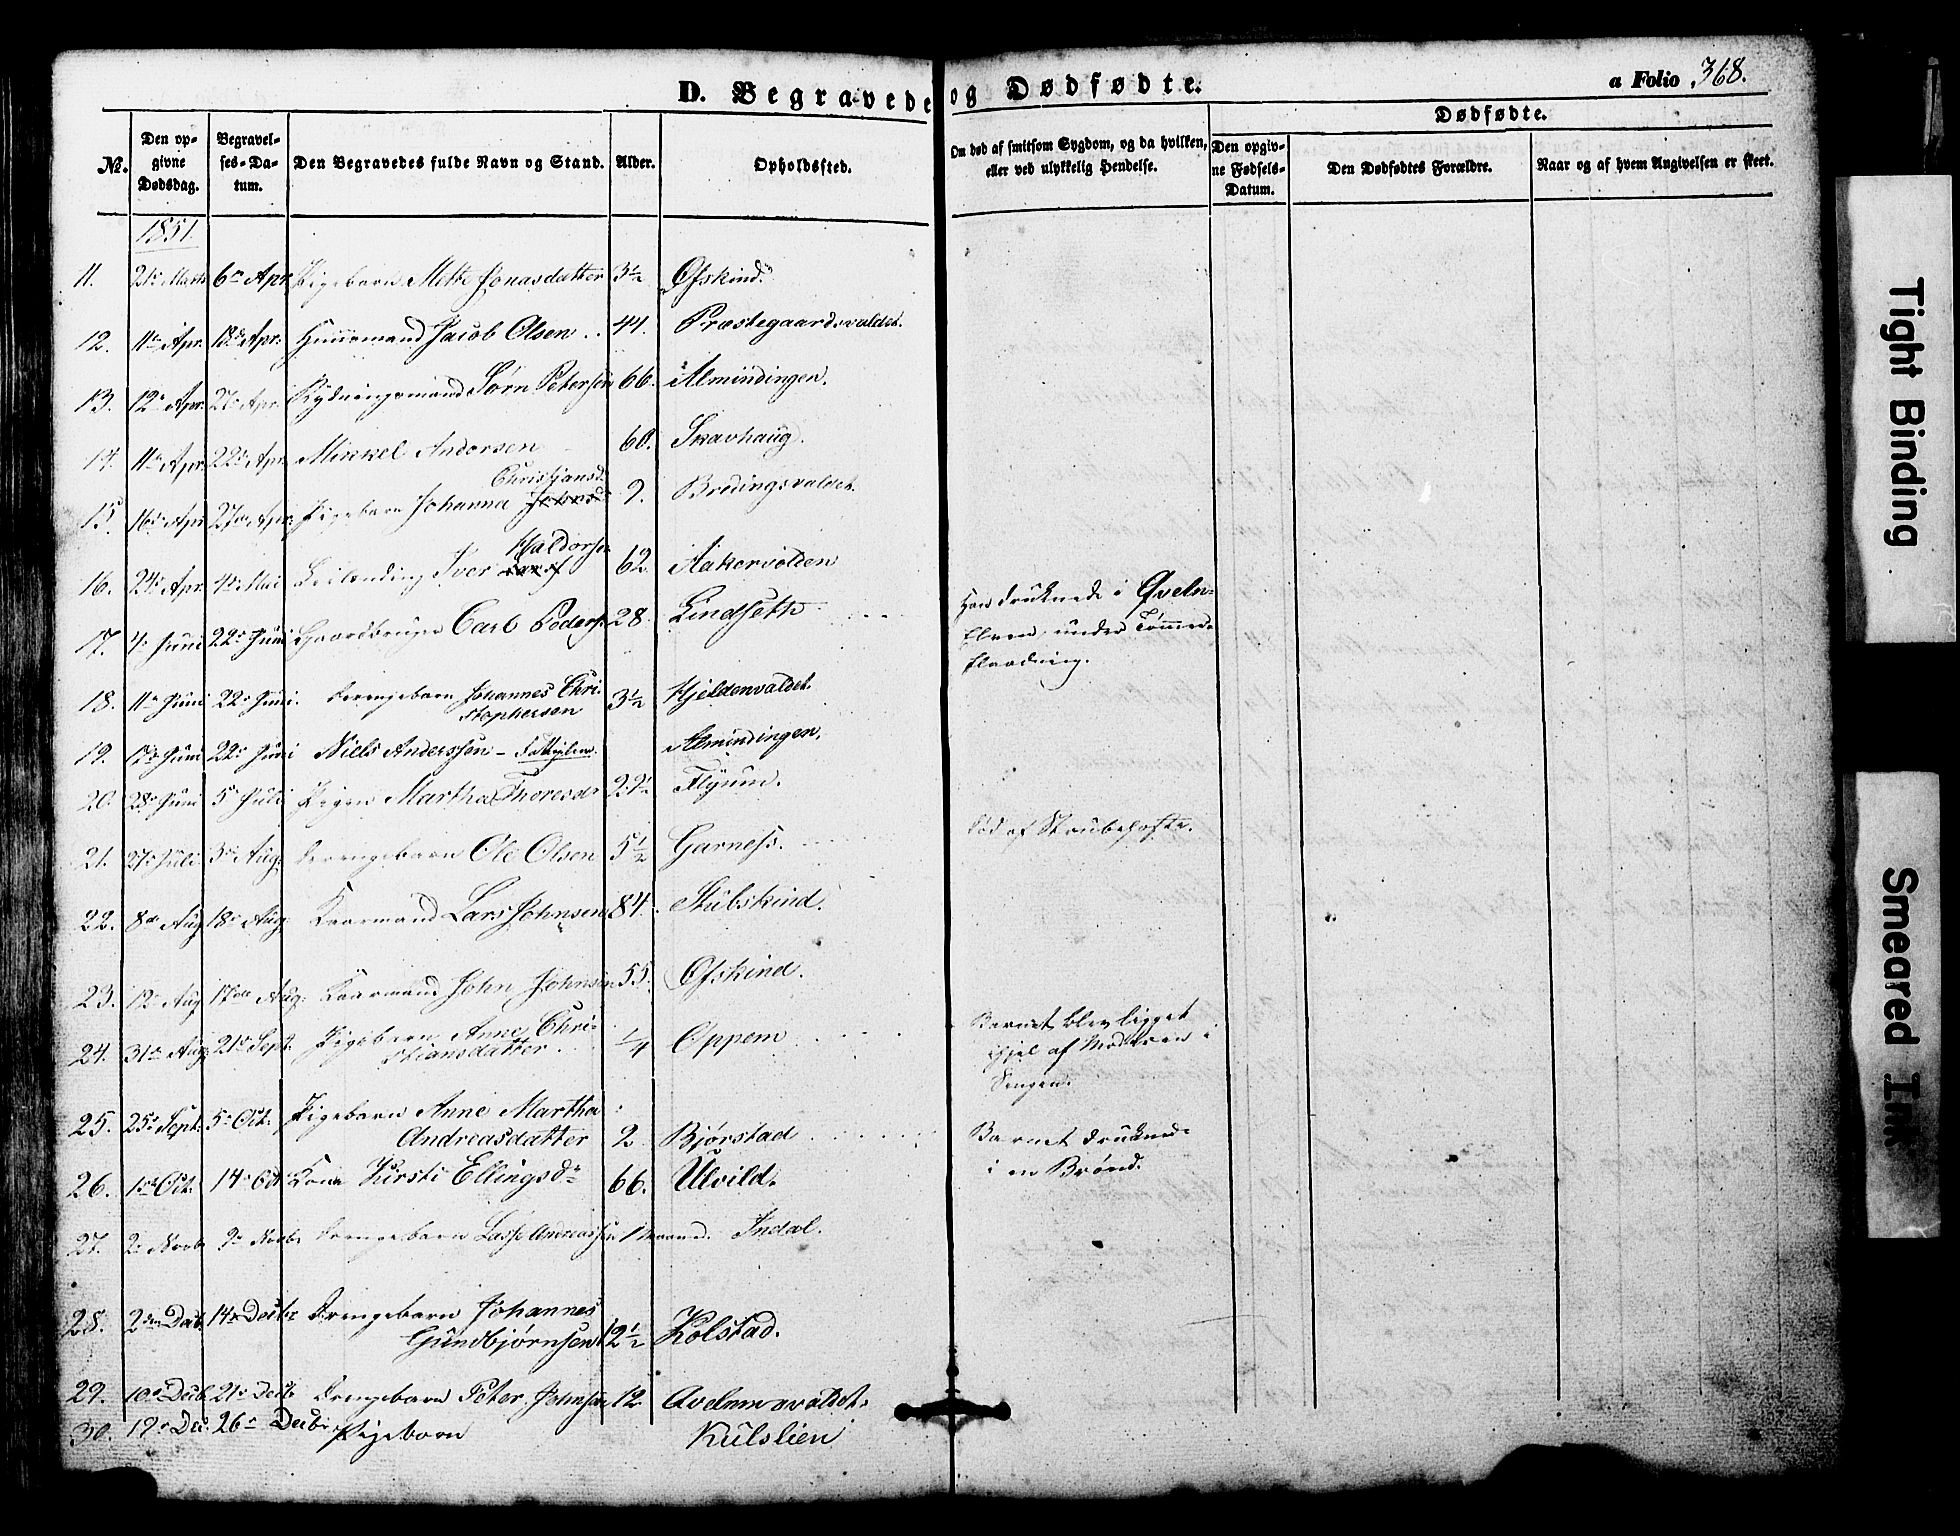 D. Begravede og Dødfødte. a Folio 368.
Dødfødte.
No. Den opgivne Dødsdag. Begravelses-Datum. Den Begravedes fulde Navn og Stand. Alder. Opholdssted. Om død af smitsom Sygdom, og da hvilken, eller ved ulykkelig Hendelse. Den opgivne Fødsels-Datum. Den Dødfødtes Forældre. Naar og af hvem Angivelsen er skeet.
1851
11. 21de Marts 6te Apr. Pigebarn Mette Jonasdatter 3½ Ofskind.
12. 11te Apr. 18de Apr. Huusmand Jacob Olsen 44. Præstegaardsvaldet.
13. 12te Apr. 21de Apr. Rydningsmand Sørn Petersen 66. Almindingen.
14. 11te Apr. 22de Apr. Mikkel Andersen 60. Skavhaug.
Christjansd.
15. 16de Apr 27de Apr. Pigebarn Johanna 9. Bredingsvaldet.
Haldorsen
16. 24de Apr. 4de Mai Leilending Iver 62. Aakervolden
17. 4de Juni 22de Juni Gaardbruger Carl Peders. 28. Lindseth Han druknede i Øveln-
Elven, under Tømmer-
flaadning.
18. 11te Juni 22de Juni. Drengebarn Johannes Chri-
stophersen 3½ Hjeldenvaldet.
19. 17de Juni 22de Juni Niels Anderssen - Fattiglem. Almindingen.
20. 28de Juni 5te Juli Pigen Martha Thoresdr 22½ Flyum.
21. 27de Juli 3de Aug. Drengebarn Ole Olsen 5½ Garness. Død af Strubehoste.
22. 8de Aug. 18de Aug. Kaarmand Lars Johnsen 84. Stubskind.
23. 12te Aug 17de Aug. Kaarmand John Johnsen 55. Ofskind.
24. 31te Aug. 21de Sept. Pigebarn Anne Chri-
stiansdatter ¼ Oppem Barnet blev ligget
ihjel af Moderen i
Sengen.
25. 25de Sept. 5te Oct. Pigebarn Anne Martha
Andreasdatter 2 Bjørstad Barnet druknede
i en Brønd.
26. 1ste Oct. 14de Oct Kone Kirsti Ellingsdr 66. Ulvild.
27. 2de Novb 9de Novbr Drengebarn Lasse Andreassen 1 Maaned. Indal.
28. 2den Decb. 14de Decbr Drengebarn Johannes
Gundbjørnsen 2½ Kolstad.
29. 10de Decb. 21de Decbr Drengebarn Peter Johnsen 12 Øvelmsvaldet.
30. 19de Dec. 26de Decbr Pigebarn Kulslien
Tight Binding
Smeared Ink